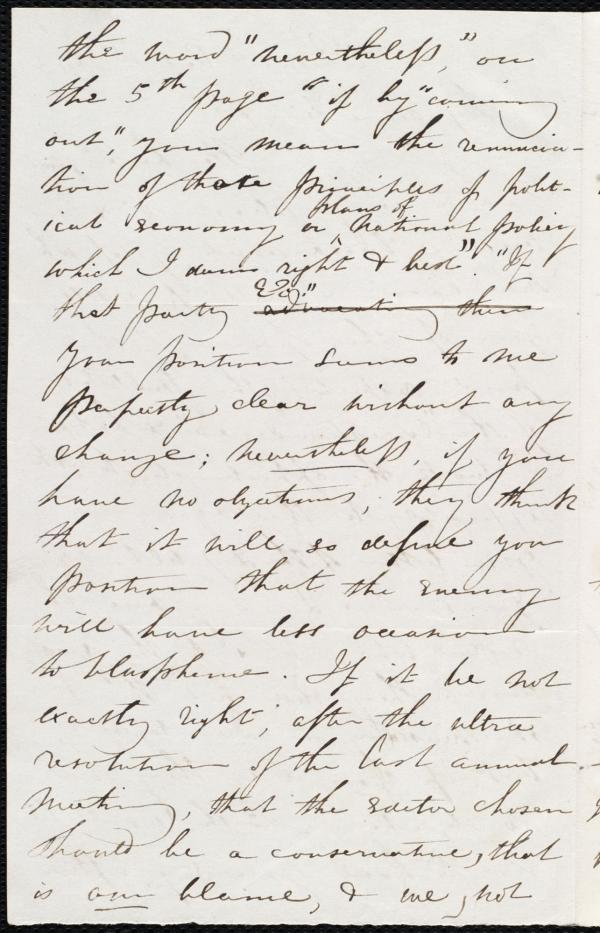 the word "nevertheless," on
the 5th page "if by "coming
out," you mean the renuncia-
tion of those principles of polit-
ical economy or plans of national policy
which I deem right & best". "If
that party &c" advocating them
Your position seems to me
perfectly clear without any
change; nevertheless, if you
have no objections, they think
that it will so define your
position that the enemy
will have less occasion
to blaspheme. If it be not
exactly right, after the ultra
resolution of the last annual
meeting, that the editor chosen
should be a conservative, that
is our blame, & we, not